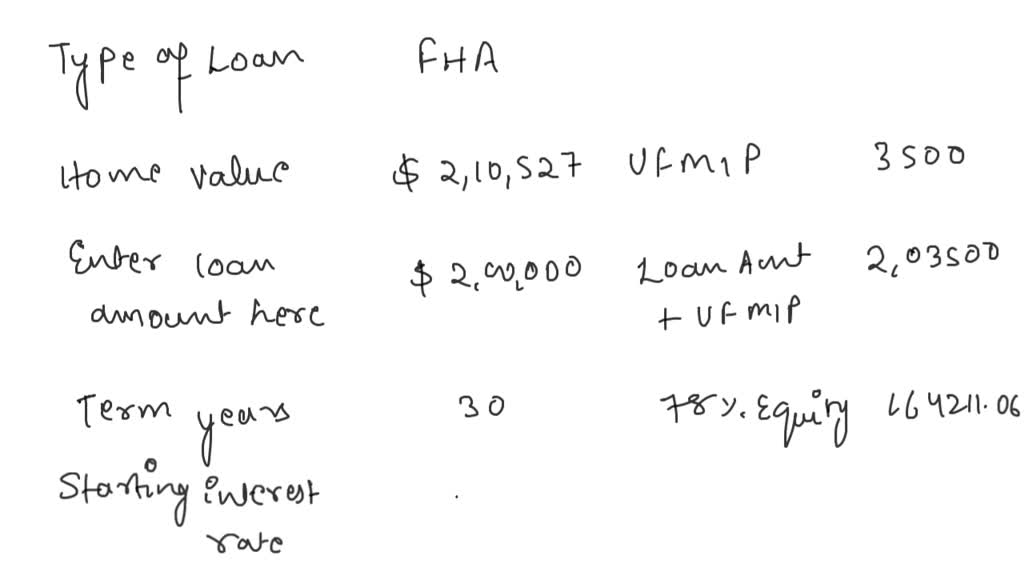 Type of Loan FHA
Home value $ 2,10,527 UFMIP 3500
Enter loan $ 2,00,000 Loan Amt 2,03500
amount here + UFMIP
Term years 30 78%. Equiry 164211.06
Starting interest
rate